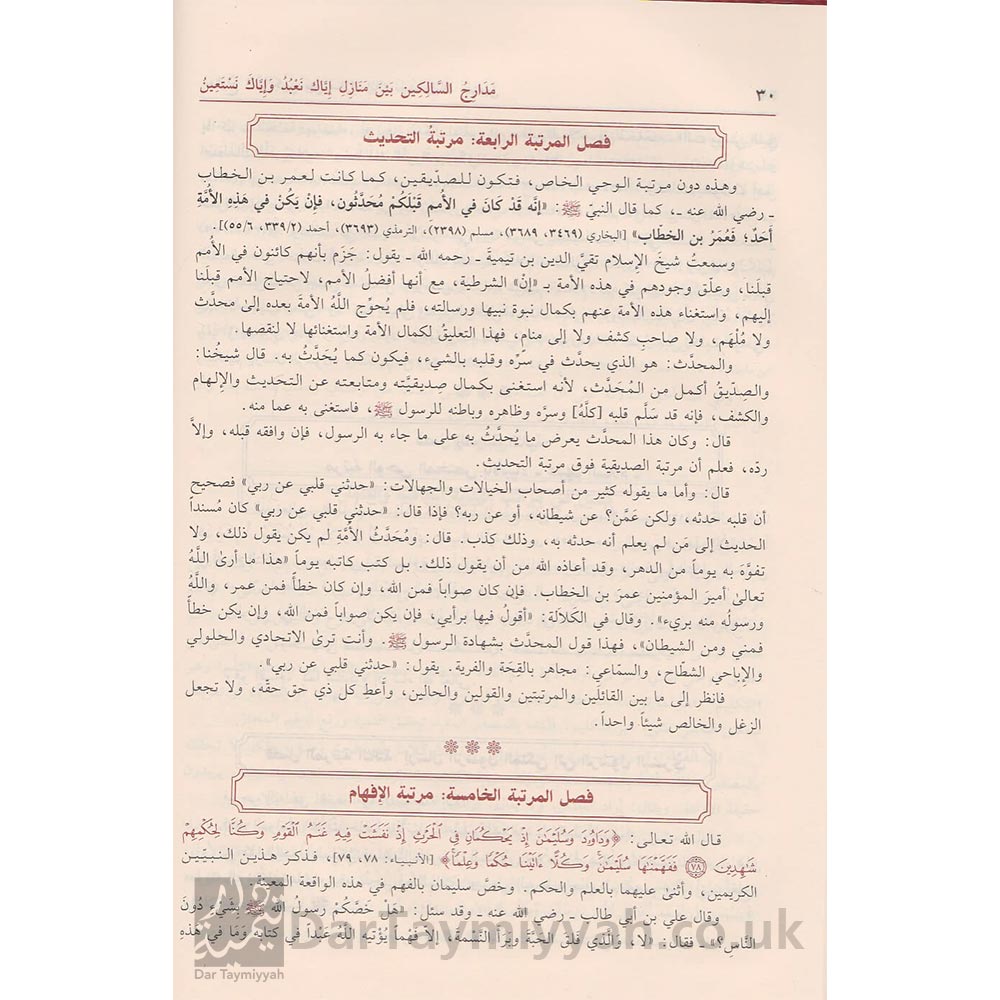 ٣٠
مَدَارِجُ السَّالِكِين بَيْنَ مَنَازِلِ إِيَّاك نَعْبُدُ وَإِيَّاكَ نَسْتَعِينُ
فصل المرتبة الرابعة: مرتبةُ التحديث
وهذه دون مرتبة الوحي الخاص، فتكون للصدّيقين، كما كانت لعمر بن الخطاب
ـ رضي الله عنه ـ، كما قال النبيّ ﷺ: «إنَّه قَدْ كَانَ في الأُممِ قَبْلَكُمْ مُحَدَّثُون، فإنْ يَكُنْ في هَذِهِ الأمَّةِ
أَحَدٌ؛ فَعُمَرُ بن الخطَّاب» [البخاري (٣٤٦٩، ٣٦٨٩)، مسلم (٢٣٩٨)، الترمذي (٣٦٩٣)، أحمد (٣٣٩/٢، ٥٥/٦)].
وسمعتُ شيخَ الإسلام تقيَّ الدين بن تيميةَ ـ رحمه الله ـ يقول: جَزَم بأنهم كائنون في الأمم
قبلَنا، وعلّق وجودهم في هذه الأمة بـ «إنْ» الشرطية، مع أنها أفضلُ الأمم، لاحتياج الأمم قبلَنا
إليهم، واستغناء هذه الأمة عنهم بكمال نبوة نبيها ورسالته، فلم يُحوِّج اللَّهُ الأمةَ بعده إلىٰ محدَّث
ولا مُلْهَم، ولا صاحب كشف ولا إلى منام، فهذا التعليقُ لكمال الأمة واستغنائها لا لنقصها.
والمحدَّث: هو الذي يحدَّث في سرِّه وقلبه بالشيء، فيكون كما يُحَدَّثُ به. قال شيخُنا:
والصِدّيقُ أكمل من المُحَدَّث، لأنه استغنى بكمال صديقيَّته ومتابعته عن التحديث والإلهام
والكشف، فإنه قد سَلَّم قلبه [كلَّهُ] وسرَّه وظاهره وباطنه للرسول ﷺ، فاستغنى به عما منه.
قال: وكان هذا المحدَّث يعرض ما يُحدَّثُ به على ما جاء به الرسول، فإن وافقه قبله، وإلاَّ
ردّه، فعلم أن مرتبة الصديقية فوق مرتبة التحديث.
قال: وأما ما يقوله كثير من أصحاب الخيالات والجهالات: «حدثني قلبي عن ربي» فصحيح
أن قلبه حدثه، ولكن عَمَّن؟ عن شيطانه، أو عن ربه؟ فإذا قال: «حدثني قلبي عن ربي» كان مُسنداً
الحديث إلى مَن لم يعلم أنه حدثه به، وذلك كذب. قال: ومُحَدَّثُ الأُمَّةِ لم يكن يقول ذلك، ولا
تفوَّهَ به يوماً من الدهر، وقد أعاذه الله من أن يقول ذلك. بل كتب كاتبه يوماً «هذا ما أرىٰ اللَّهُ
تعالىٰ أميرَ المؤمنين عمرَ بن الخطاب. فإن كان صواباً فمن الله، وإن كان خطأً فمن عمر، واللَّهُ
ورسولُه منه بريء». وقال في الكَلاَلة: «أقولُ فيها برأيي، فإن يكن صواباً فمن الله، وإن يكن خطأً
فمني ومن الشيطان»، فهذا قول المحدَّث بشهادة الرسول ﷺ. وأنت ترىٰ الاتحادي والحلولي
والإباحي الشطَّاح، والسمّاعي: مجاهر بالقِحَة والفرية. يقول: «حدثني قلبي عن ربي».
فانظر إلى ما بين القائلَين والمرتبتين والقولين والحالين، وأَعطِ كل ذي حق حقّه، ولا تجعل
الزغل والخالص شيئاً واحداً.
فصل المرتبة الخامسة: مرتبة الإفهام
قال الله تعالى: ﴿وَدَاوُۥدَ وَسُلَيْمَٰنَ إِذْ يَحْكُمَانِ فِى ٱلْحَرْثِ إِذْ نَفَشَتْ فِيهِ غَنَمُ ٱلْقَوْمِ وَكُنَّا لِحُكْمِهِمْ
شَٰهِدِينَ ﴿٧٨﴾ فَفَهَّمْنَٰهَا سُلَيْمَٰنَ وَكُلًّا ءَاتَيْنَا حُكْمًا وَعِلْمًا﴾ [الأنبياء: ٧٨، ٧٩]، فذكرَ هذين النبيّين
الكريمين، وأثنىٰ عليهما بالعلم والحكم. وخصَّ سليمان بالفهم في هذه الواقعة المعينة.
وقال علي بن أبي طالب ـ رضي الله عنه ـ وقد سئل: «هَلْ خَصَّكُمْ رسولُ الله ﷺ بِشَيْءٍ دُونَ
النَّاسِ؟» ـ فقال: «لا، وَالَّذي فَلَقَ الحَبَّةَ وبرأَ النَّسْمةَ، إلاَّ فَهْماً يُؤتيهِ اللَّهُ عَبْداً في كتابِهِ وَمَا في هَذِهِ
DarTaymiyyah.co.uk
Dar Taymiyyah